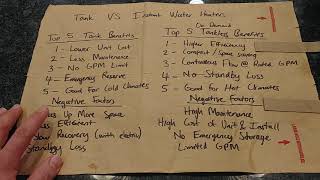 Tank VS Instant Water Heaters
On Demand
Top 5 Tank Benefits
1 - Lower Unit Cost
2 - Less Maintenance
3 - No GPM Limit
4 - Emergency Reserve
5 - Good For Cold Climates
Negative Factors
Up More Space
Efficient
Recovery (with electric)
Standby Loss
Top 5 Tankless Benefits
1 - Higher Efficiency
2 - Compact / Space saving
3 - Continuous Flow @ Rated GPM
4 - No Standby Loss
5 - Good for Hot Climates
Negative Factors
High Maintenance
High Cost of Unit & Install
No Emergency Storage
Limited GPM